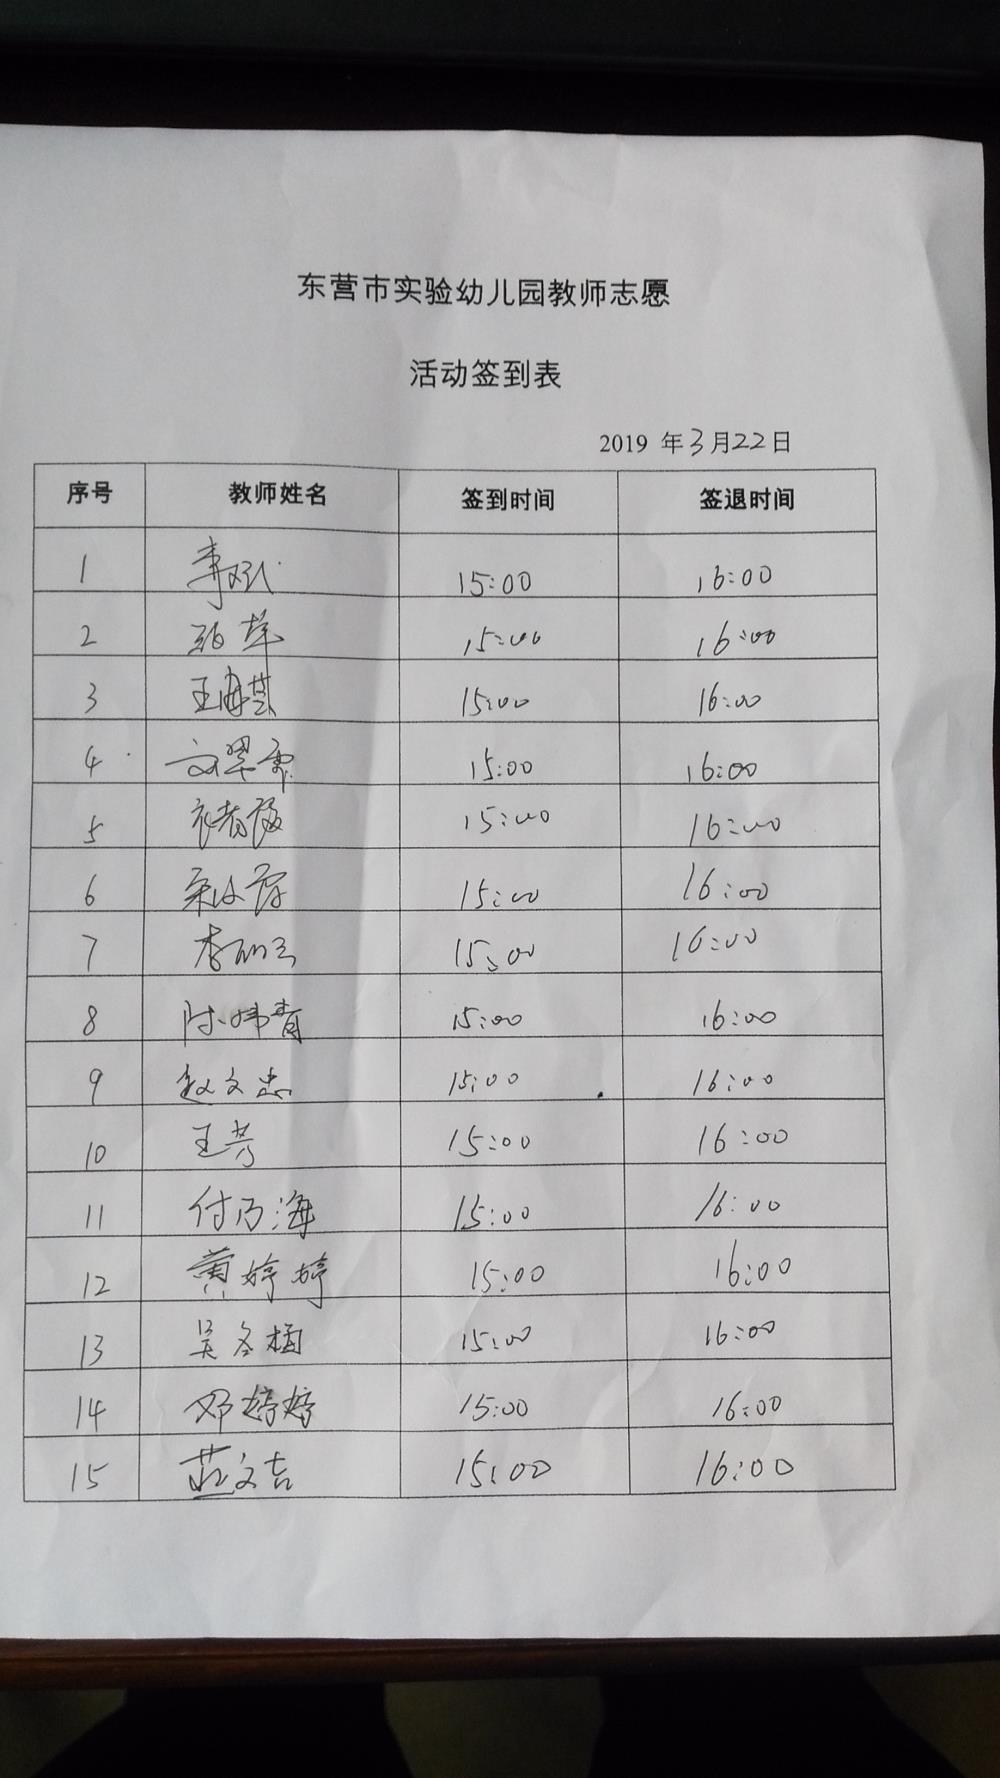 东营市实验幼儿园教师志愿
活动签到表
2019 年3月22日
序号 教师姓名 签到时间 签退时间
1 李斌 15:00 16:00
2 15:00 16:00
3 15:00 16:00
4 15:00 16:00
5 15:00 16:00
6 15:00 16:00
7 15:00 16:00
8 15:00 16:00
9 赵文忠 15:00 16:00
10 王芳 15:00 16:00
11 付乃海 15:00 16:00
12 黄婷婷 15:00 16:00
13 吴冬梅 15:00 16:00
14 邓婷婷 15:00 16:00
15 15:00 16:00